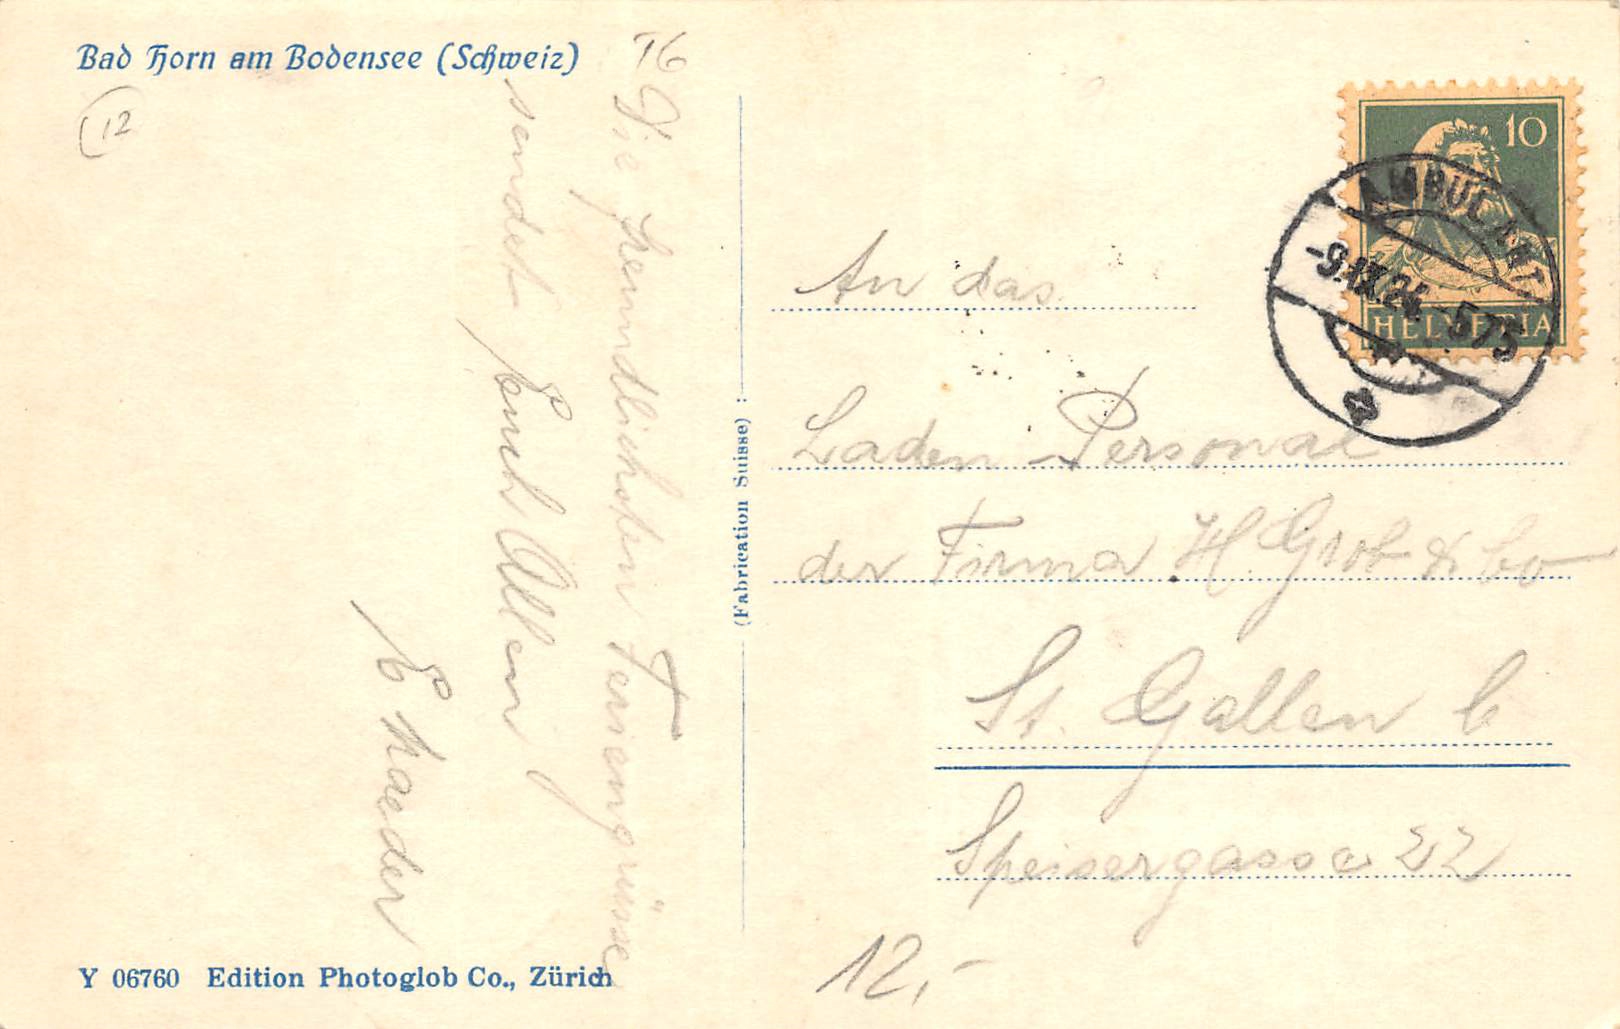 Bad Horn am Bodensee (Schweiz)
TG
12
Die freundlichsten Feriengrüsse
sendet Euch Allen
E Kaeder
(Fabrication Suisse) :
10
HELVETIA
AMBULANT
-9.IX.24. 573
An das
Laden-Personal
der Firma H. Grob & Co
St. Gallen C
Speisergasse 22
12.-
Y 06760 Edition Photoglob Co., Zürich